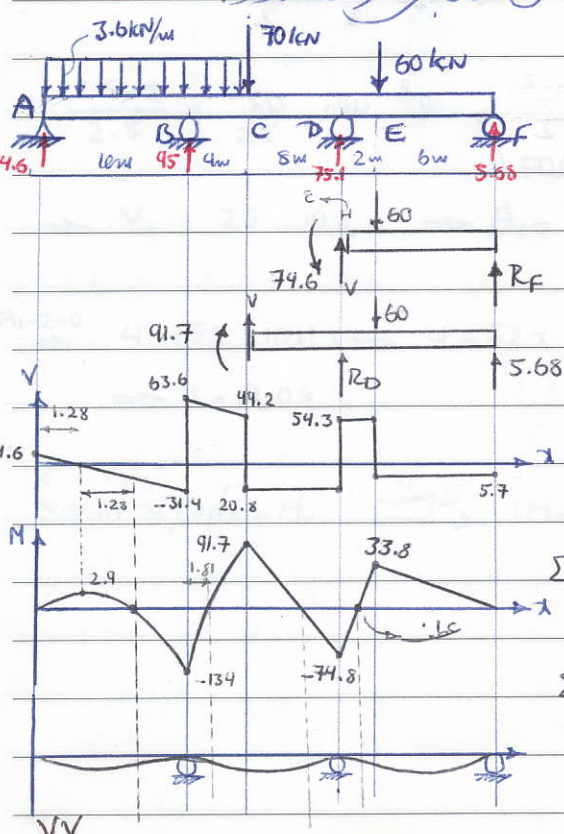 3.6kN/m 70kN 60kN
A B C D E F
4.6 10m 95 4m 8m 75.1 2m 6m 5.68
60
74.6 V R_F
V 60
91.7 R_D 5.68
V 63.6 49.2 54.3
1.28 x
4.6 1.28 -31.4 20.8 5.7
M 91.7 33.8
2.9 1.81 x
-134 -74.8